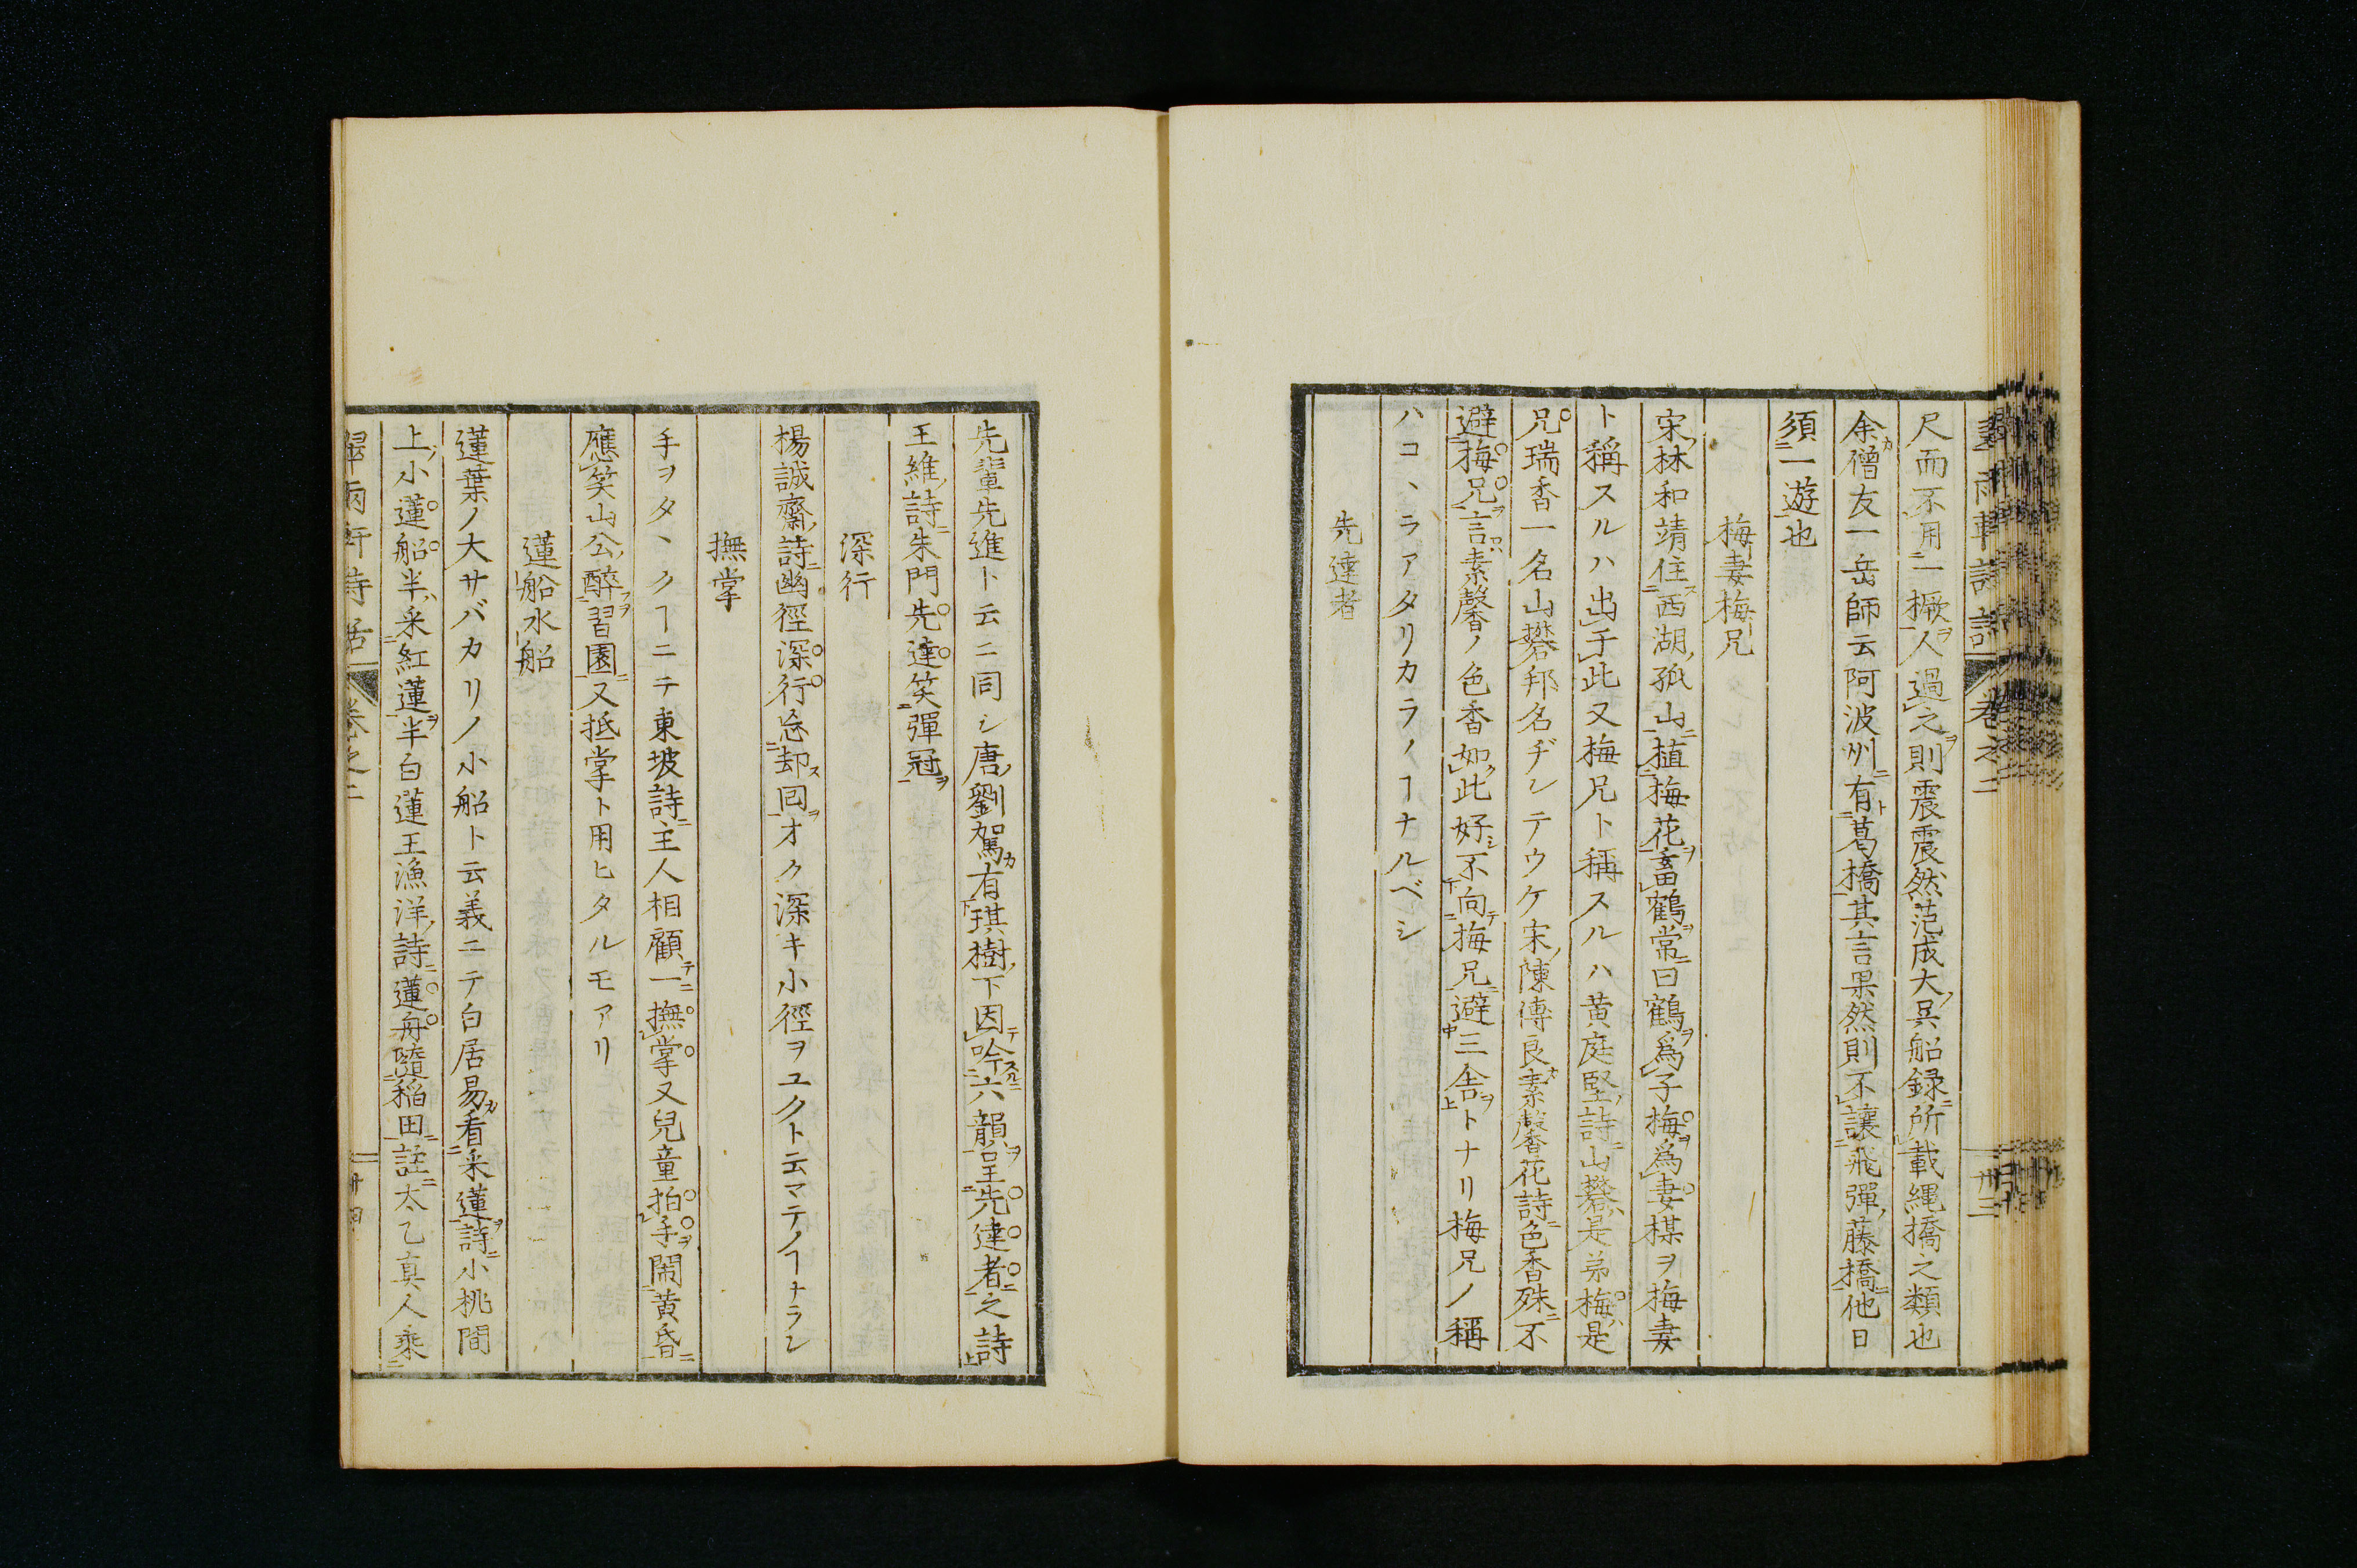 尺而不用一橛人過之則震震然范成大呉船録所載縄橋之類也
余僧友一岳師云阿波州有葛橋其言果然則不讓飛彈藤橋他日
須一遊也
梅妻梅兄
宋林和靖住西湖孤山植梅花畜鶴常曰鶴爲子梅爲妻楳ヲ梅妻
ト稱スルハ出于此又梅兄ト稱スルハ黄庭堅詩山礬是弟梅是
兄瑞香一名山礬邦名ヂンテウケ宋陳傅良素馨花詩色香殊不
避梅兄言素馨ノ色香如此好不向梅兄避三舎トナリ梅兄ノ稱
ハコヽラアタリカラノヿナルベシ
先達者
先輩先進ト云ニ同シ唐劉駕有琪樹下因吟六韻呈先達者之詩
王維詩朱門先達笑彈冠
深行
楊誠齋詩幽徑深行忘却回オク深キ小徑ヲユクト云マテノヿナラン
撫掌
手ヲタヽクヿニテ東坡詩主人相顧一撫掌又兒童拍手閙黄昏
應笑山公醉習園又抵掌ト用ヒタルモアリ
蓮船水船
蓮葉ノ大サバカリノ小船ト云義ニテ白居易看采蓮詩小桃間
上小蓮船半采紅蓮半白蓮王漁洋詩蓮舟隨稲田註太乙真人乘
卷之二